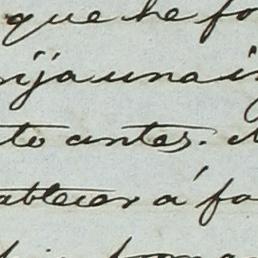 que he fo
ija una i
to antes.
ablecer á fa